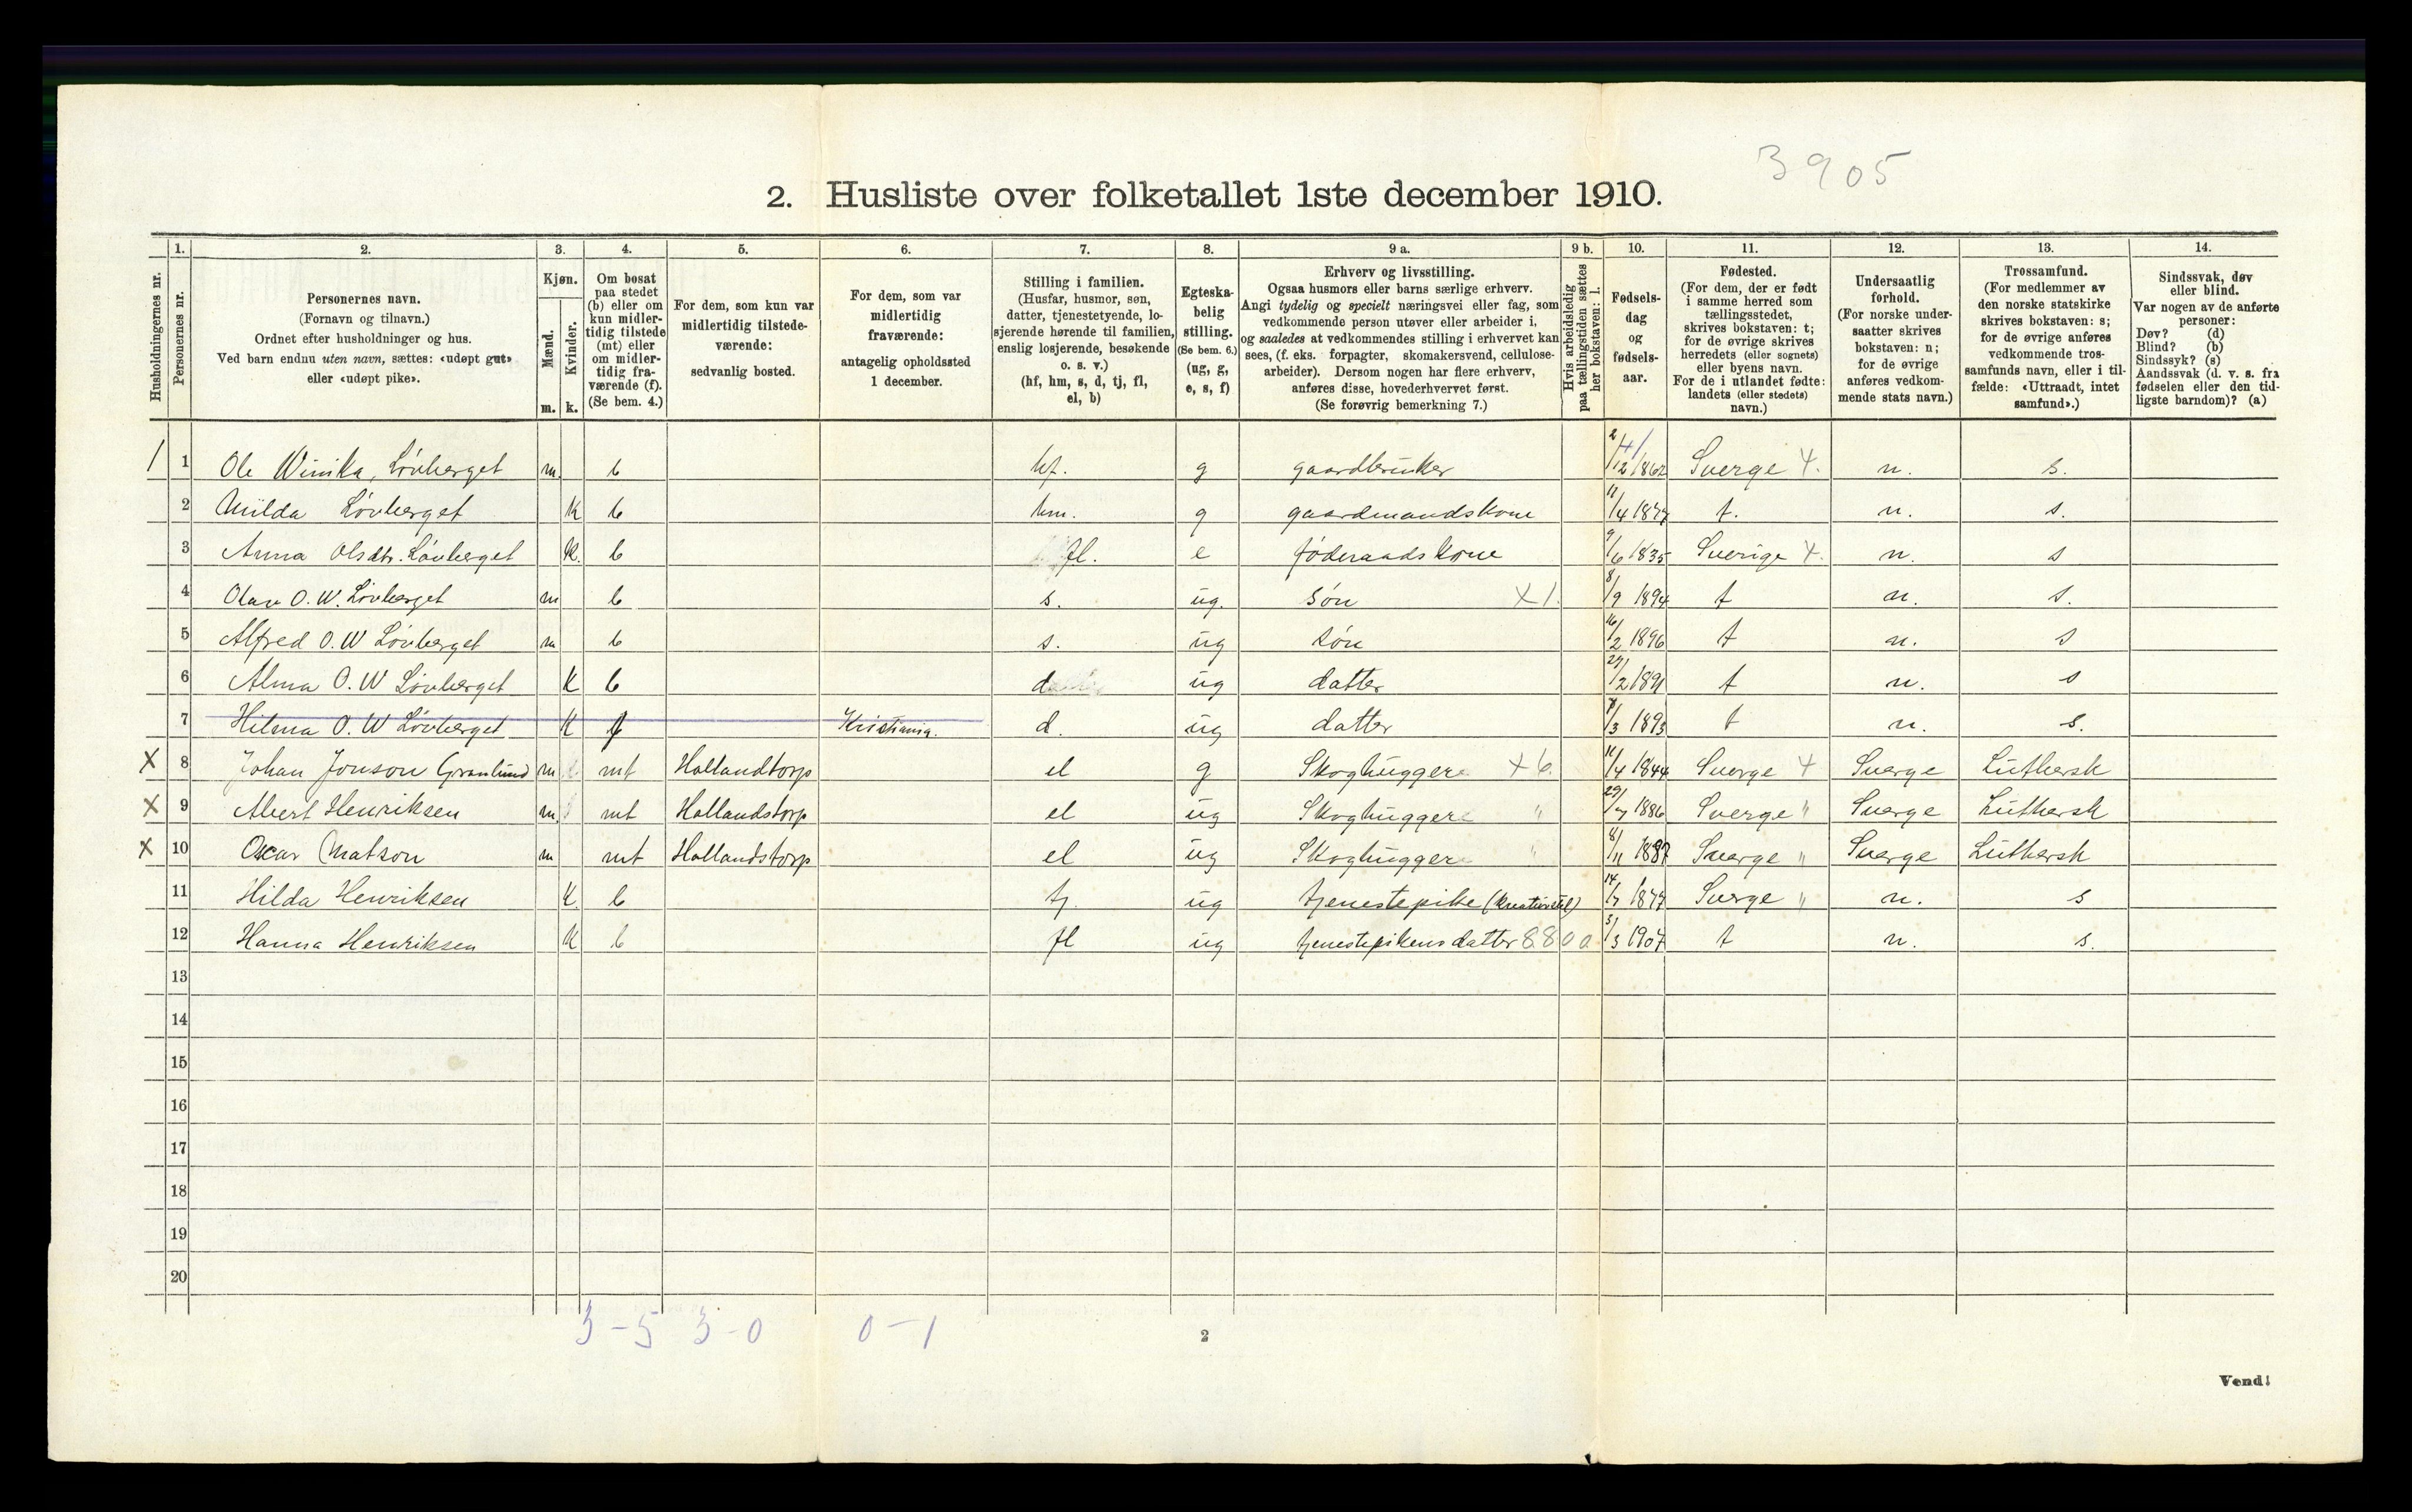 3905
2. Husliste over folketallet 1ste december 1910.
Husholdningernes nr.
1. Personernes nr.
2. Personernes navn. (Fornavn og tilnavn.) Ordnet efter husholdninger og hus. Ved barn endnu uten navn, sættes: «udøpt gut» eller «udøpt pike».
3. Kjøn. Mænd. m. Kvinder. k.
4. Om bosat paa stedet (b) eller om kun midlertidig tilstede (mt) eller om midlertidig fraværende (f). (Se bem. 4.)
5. For dem, som kun var midlertidig tilstedeværende: sedvanlig bosted.
6. For dem, som var midlertidig fraværende: antagelig opholdssted 1 december.
7. Stilling i familien. (Husfar, husmor, søn, datter, tjenestetyende, losjerende hørende til familien, enslig losjerende, besøkende o. s. v.) (hf, hm, s, d, tj, fl, el, b)
8. Egteskabelig stilling. (Se bem. 6.) (ug, g, e, s, f)
9 a. Erhverv og livsstilling. Ogsaa husmors eller barns særlige erhverv. Angi tydelig og specielt næringsvei eller fag, som vedkommende person utøver eller arbeider i, og saaledes at vedkommendes stilling i erhvervet kan sees, (f. eks. forpagter, skomakersvend, cellulosearbeider). Dersom nogen har flere erhverv, anføres disse, hovederhvervet først. (Se forøvrig bemerkning 7.)
9 b. Hvis arbeidsledig paa tællingstiden sættes her bokstaven: l.
10. Fødselsdag og fødselsaar.
11. Fødested. (For dem, der er født i samme herred som tællingsstedet, skrives bokstaven: t; for de øvrige skrives herredets (eller sognets) eller byens navn. For de i utlandet fødte: landets (eller stedets) navn.)
12. Undersaatlig forhold. (For norske undersaatter skrives bokstaven: n; for de øvrige anføres vedkommende stats navn.)
13. Trossamfund. (For medlemmer av den norske statskirke skrives bokstaven: s; for de øvrige anføres vedkommende trossamfunds navn, eller i tilfælde: «Uttraadt, intet samfund».)
14. Sindssvak, døv eller blind. Var nogen av de anførte personer: Døv? (d) Blind? (b) Sindssyk? (s) Aandssvak (d. v. s. fra fødselen eller den tidligste barndom)? (a)
1 1 Ole Winika, Lövberget m. b hf. g gaardbruker 2/12 1862 Sverge 4. n. s.
2 Milda Lövberget k b hm. g gaardmandskone 17/4 1877 t. n. s.
3 Anna Olsdtr. Lövberget k. b fl. e föderaadskone 9/6 1835 Sverige 4. n. s
4 Olav O. W. Lövberget m b s. ug. sön X 1. 8/9 1894 t n. s.
5 Alfred O. W Lövberget m b s. ug sön 16/2 1896 t n. s
6 Alma O. W Lövberget K b d ug datter 27/2 1891 t n. s
7 Hilma O. W Lövberget K f Kristiania. d. ug datter 7/3 1893 t n. s.
X 8 Johan Jonson Granlund m mt Hollandtorp el g Skoghugger X 6. 11/4 1844 Sverge 4 Sverge Luthersk
X 9 Albert Henriksen m. mt Hollandstorp el ug Skoghugger " 29/7 1886 Sverge " Sverge Luthersk
X 10 Oscar Matson m mt Hollandstorp el ug Skoghugger " 8/11 1887 Sverge " Sverge Luthersk
11 Hilda Henriksen K. b tj. ug tjenestepike (kreaturstel) 14/7 1877 Sverge " n. s
12 Hanna Henriksen K b fl ug tjenestepikens datter 8800 3/3 1907 t n. s.
13
14
15
16
17
18
19
20
3-5 3-0 0-1
2
Vend!